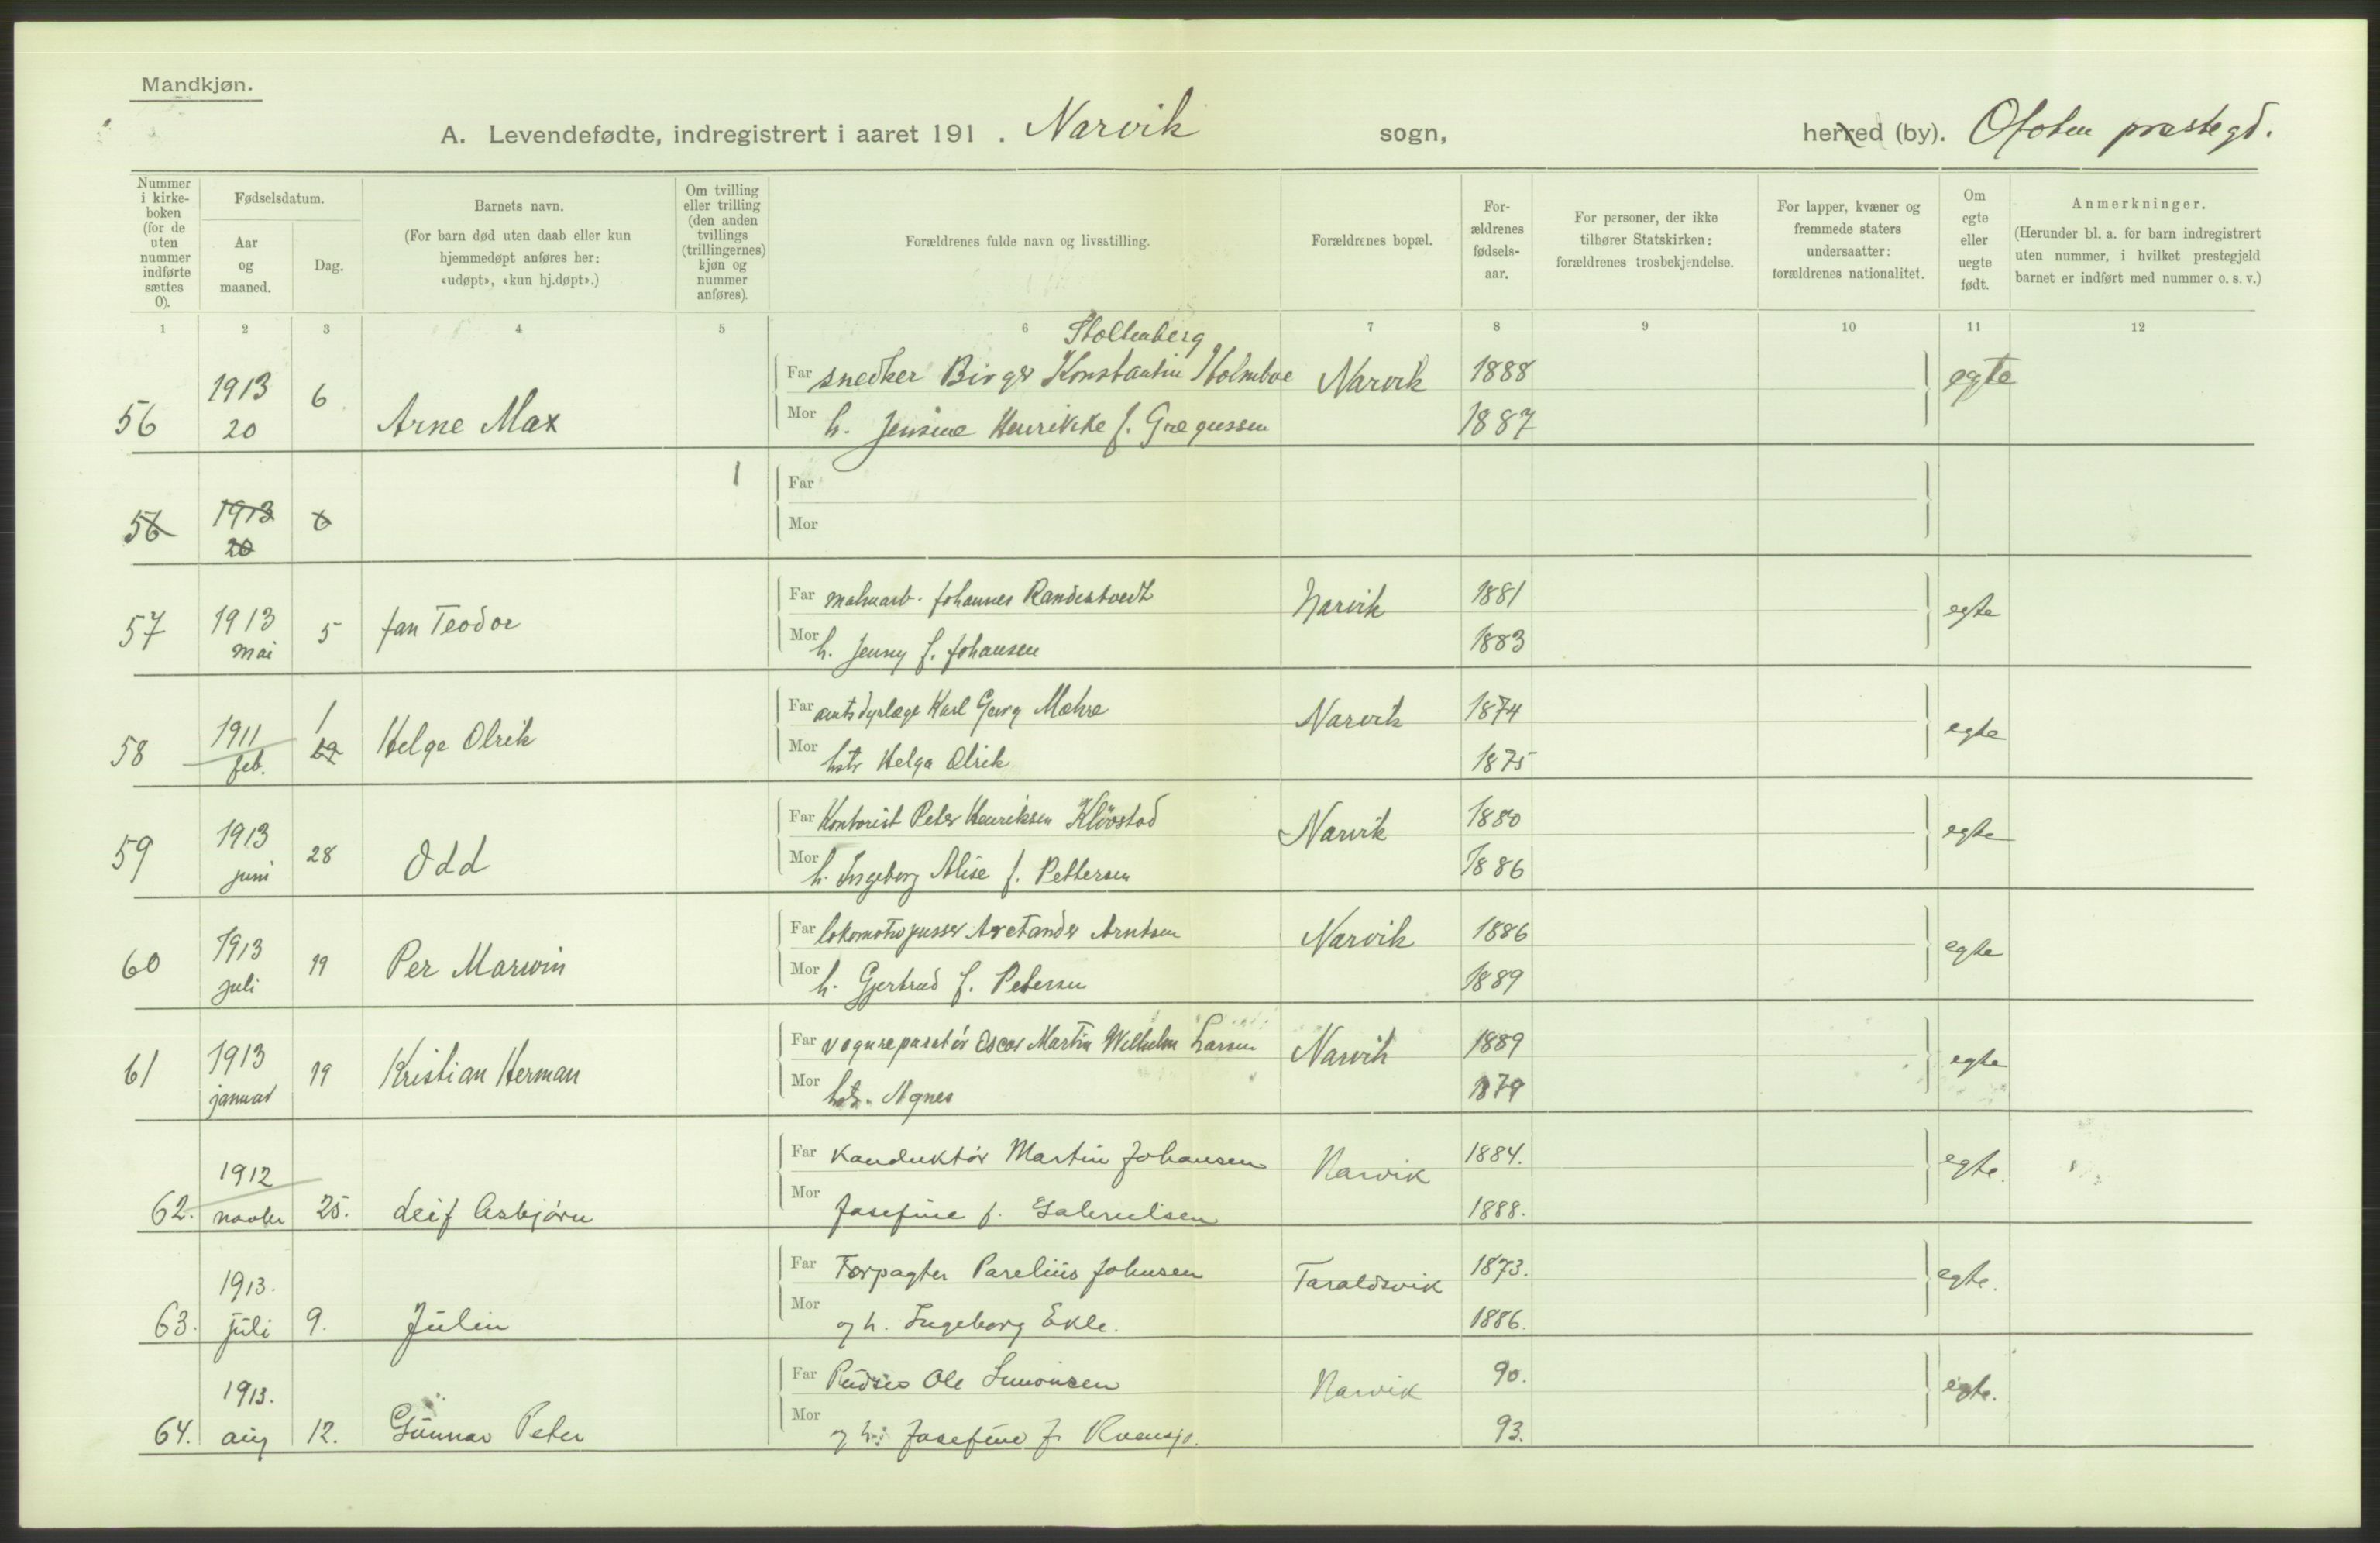 Mandkjøn.
A. Levendefødte, indregistrert i aaret 191 . Narvik sogn, herred (by). Ofoten prestegd.
Nummer i kirke-boken (for de uten nummer indførte sættes 0).
Fødselsdatum.
Aar og maaned.
Dag.
Barnets navn.
(For barn død uten daab eller kun hjemmedøpt anføres her: «udøpt», «kun hj.døpt».)
Om tvilling eller trilling (den anden tvillings (trillingernes) kjøn og nummer anføres).
Forældrenes fulde navn og livsstilling.
Forældrenes bopæl.
For-ældrenes fødsels-aar.
For personer, der ikke tilhører Statskirken: forældrenes trosbekjendelse.
For lapper, kvæner og fremmede staters undersaatter: forældrenes nationalitet.
Om egte eller uegte født.
Anmerkninger.
(Herunder bl. a. for barn indregistrert uten nummer, i hvilket prestegjeld barnet er indført med nummer o. s. v.)
1 2 3 4 5 6 7 8 9 10 11 12
Stoltenberg
1913 6 Far snedker Birger Konstantin Holmboe Narvik 1888 egte
56 20 Arne Max Mor h. Jensine Henrikke f. Gregussen 1887
1 Far
56 1913 6 Mor
20
Far malmarb. Johannes Randestvedt Narvik 1881
57 1913 mai 5 Jan Teodor Mor h. Jenny f. Johansen 1883 egte
1 Far amtsdyrlæge Karl Georg Mohre Narvik 1874
58 1911 feb. 19 Helge Olrik Mor hstr Helga Olrik 1875 egte
Far Kontorist Peter Henriksen Klövstad Narvik 1880
59 1913 juni 28 Odd Mor h. Ingeborg Alise f. Pettersen 1886 egte
Far lokomotivpusser Arntsen Narvik 1886
60 1913 juli 19 Per Marwin Mor h. Gjertrud f. Petersen 1889 egte
Far vognreparatør Oscar Martin Wilhelm Larsen Narvik 1889
61 1913 januar 19 Kristian Herman Mor hstr. Agnes 1879 egte
1912 Far Konduktør Martin Johansen Narvik 1884. egte.
62. novbr 25. Leif Asbjørn Mor Josefine f. Gabrielsen 1888.
1913. Far Forpagter Parelius Johnsen Taraldsvik 1873. egte.
63. juli 9. Julin Mor og h. Ingeborg Ekle. 1886.
1913. Far Pudser Ole Simonsen Narvik 90. egte.
64. aug 12. Gunnar Peter Mor og h. Josefine f. 93.